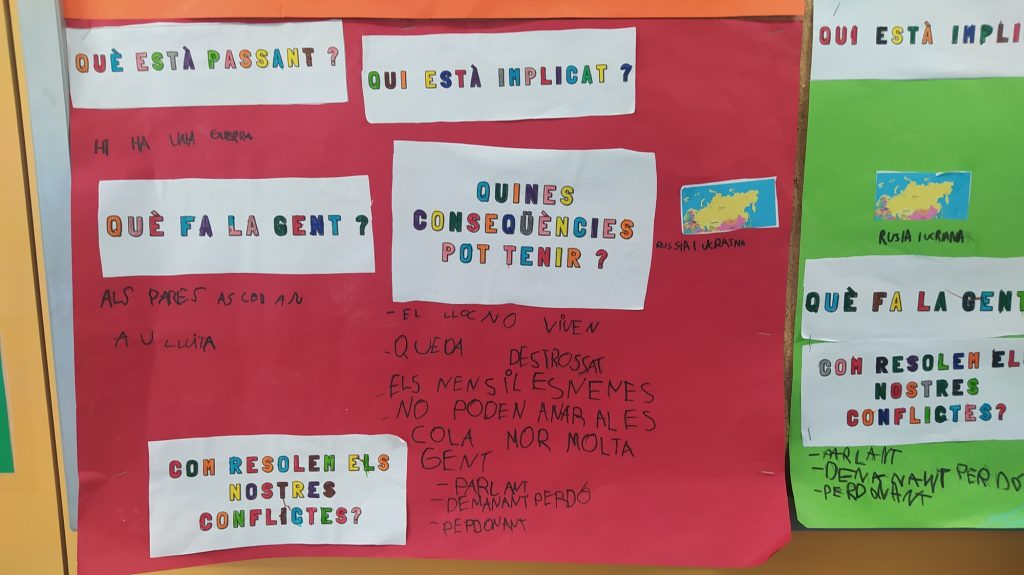 QUÈ ESTÀ PASSANT ?
HI HA UNA GUERRA
QUI ESTÀ IMPLICAT ?
RUSSIA I UCRAINA
QUÈ FA LA GENT ?
ALS PARES
A LLUITA
QUINES
CONSEQÜÈNCIES
POT TENIR ?
- EL LLOC NO VIVEN
- QUEDA DESTROSSAT
- ELS NENS I LES NENES
- NO PODEN ANAR A LES
COLA MOR MOLTA
GENT
COM RESOLEM ELS
NOSTRES
CONFLICTES?
- PARLANT
- DEMANANT PERDÓ
- PERDONANT
QUI ESTÀ IMPLI
RUSIA I UCRIANA
QUÈ FA LA GENT
COM RESOLEM ELS
NOSTRES
CONFLICTES?
- PARLANT
- DEMANANT PERDÓ
- PERDONANT